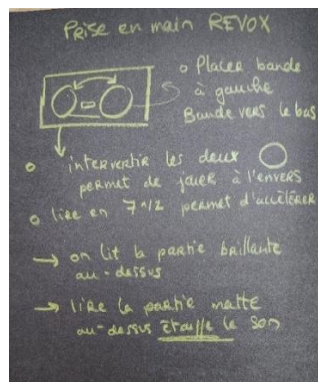 Prise en main REVOX
o Placer bande
à gauche
Bande vers le bas
o intervertir les deux
permet de jouer à l'envers
o lire en 7"1/2 permet d'accélérer
→ on lit la partie brillante
au-dessus
→ lire la partie matte
au-dessus étouffe le son